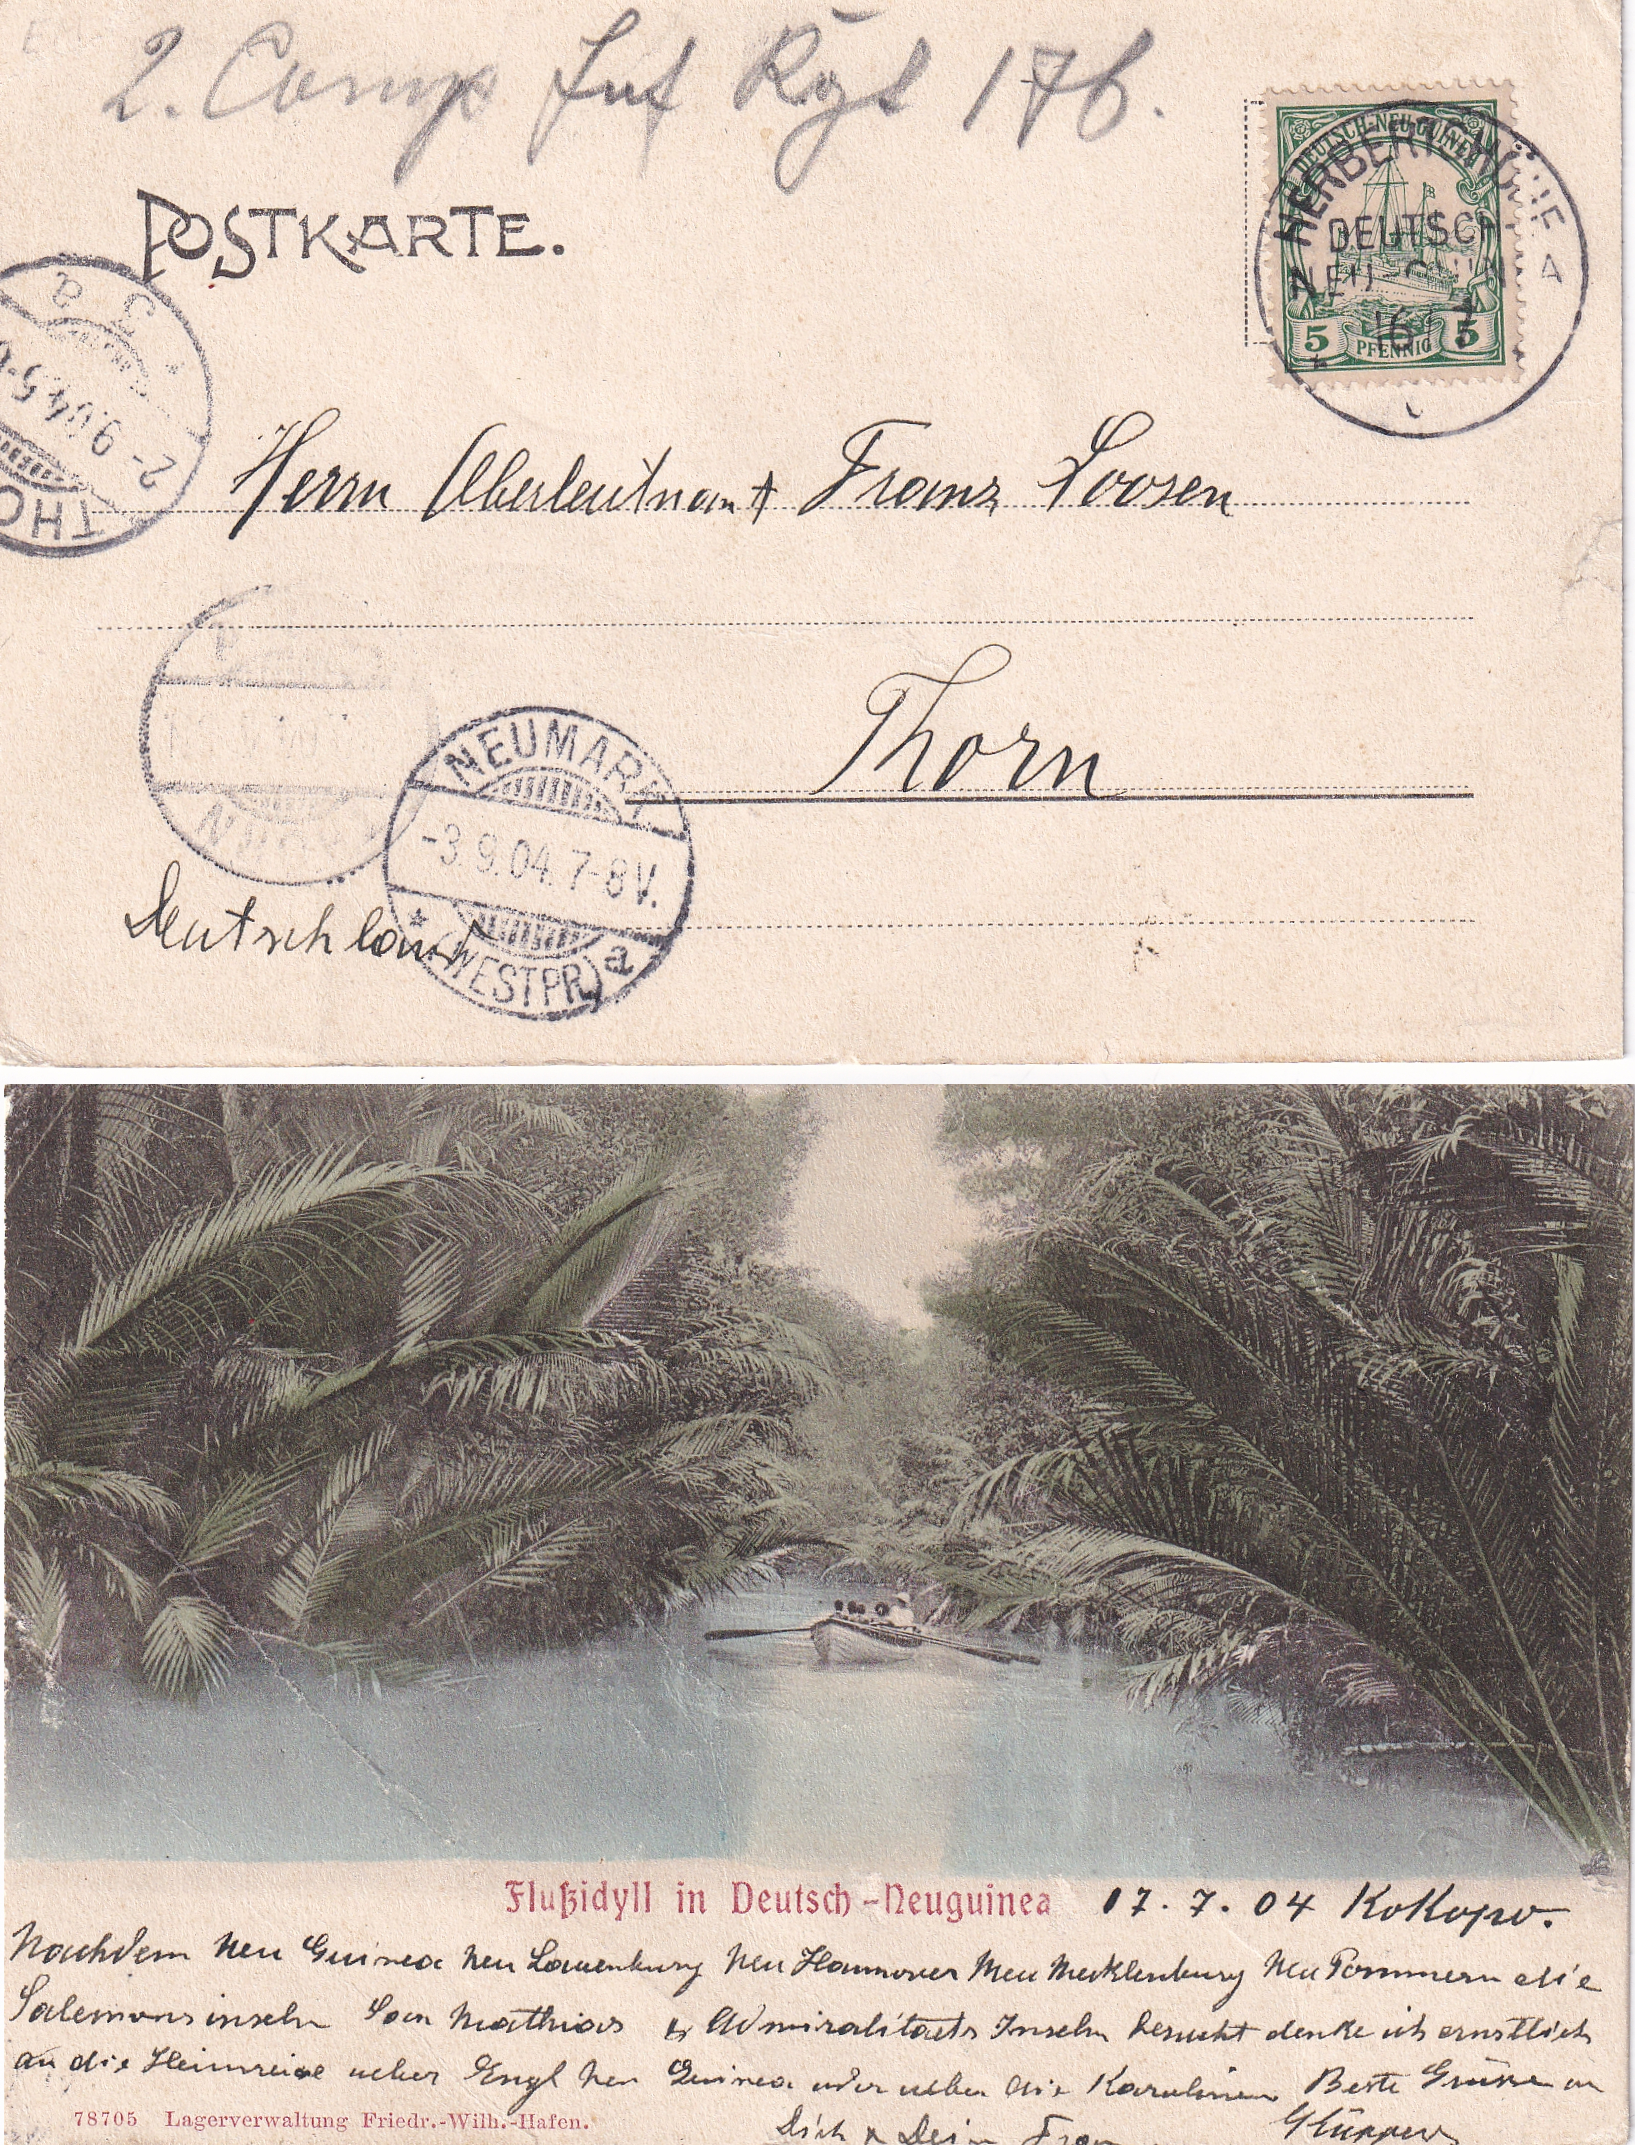 2. Comp Inf Rgt 176.
POSTKARTE.
DEUTSCH-NEU-GUINEA
5 PFENNIG 5
HERBERTSHÖHE
DEUTSCH
NEU-GUINEA
16
THO
2-9.04.5-6
a
Herrn Oberleutnant Franz Loosen
Thorn
Deutschland
NEUMARK
-3.9.04.7-8V.
* (WESTPR.) a
Flußidyll in Deutsch-Neuguinea
17.7.04 Kokopo.
Nachdem Neu Guinea Neu Lauenburg Neu Hannover Neu Mecklenburg Neu Pommern die
Salemonsinseln San Mathias & Admiralitaets Inseln besucht denke ich ernstlich
an die Heimreise ueber Engl Neu Guinea oder ueber die Karolinen Beste Grüsse an
Dich & Deine Frau
78705 Lagerverwaltung Friedr.-Wilh.-Hafen.
GKüppers